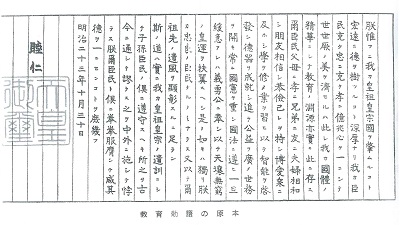 朕惟フニ我カ皇祖皇宗國ヲ肇ムルコト
宏遠ニ德ヲ樹ツルコト深厚ナリ我カ臣
民克ク忠ニ克ク孝ニ億兆心ヲ一ニシテ
世世厥ノ美ヲ濟セルハ此レ我カ國體ノ
精華ニシテ教育ノ淵源亦實ニ此ニ存ス
爾臣民父母ニ孝ニ兄弟ニ友ニ夫婦相和
シ朋友相信シ恭儉己レヲ持シ博愛衆ニ
及ホシ學ヲ修メ業ヲ習ヒ以テ智能ヲ啓
發シ德器ヲ成就シ進テ公益ヲ廣メ世務
ヲ開キ常ニ國憲ヲ重シ國法ニ遵ヒ一旦
緩急アレハ義勇公ニ奉シ以テ天壤無窮
ノ皇運ヲ扶翼スヘシ是ノ如キハ獨リ朕
カ忠良ノ臣民タルノミナラス又以テ爾
祖先ノ遺風ヲ顯彰スルニ足ラン
斯ノ道ハ實ニ我カ皇祖皇宗ノ遺訓ニシ
テ子孫臣民ノ俱ニ遵守スヘキ所之ヲ古
今ニ通シテ謬ラス之ヲ中外ニ施シテ悖
ラス朕爾臣民ト俱ニ拳拳服膺シテ咸其
德ヲ一ニセンコトヲ庶幾フ
明治二十三年十月三十日
睦仁
天皇御璽
教育勅語の原本